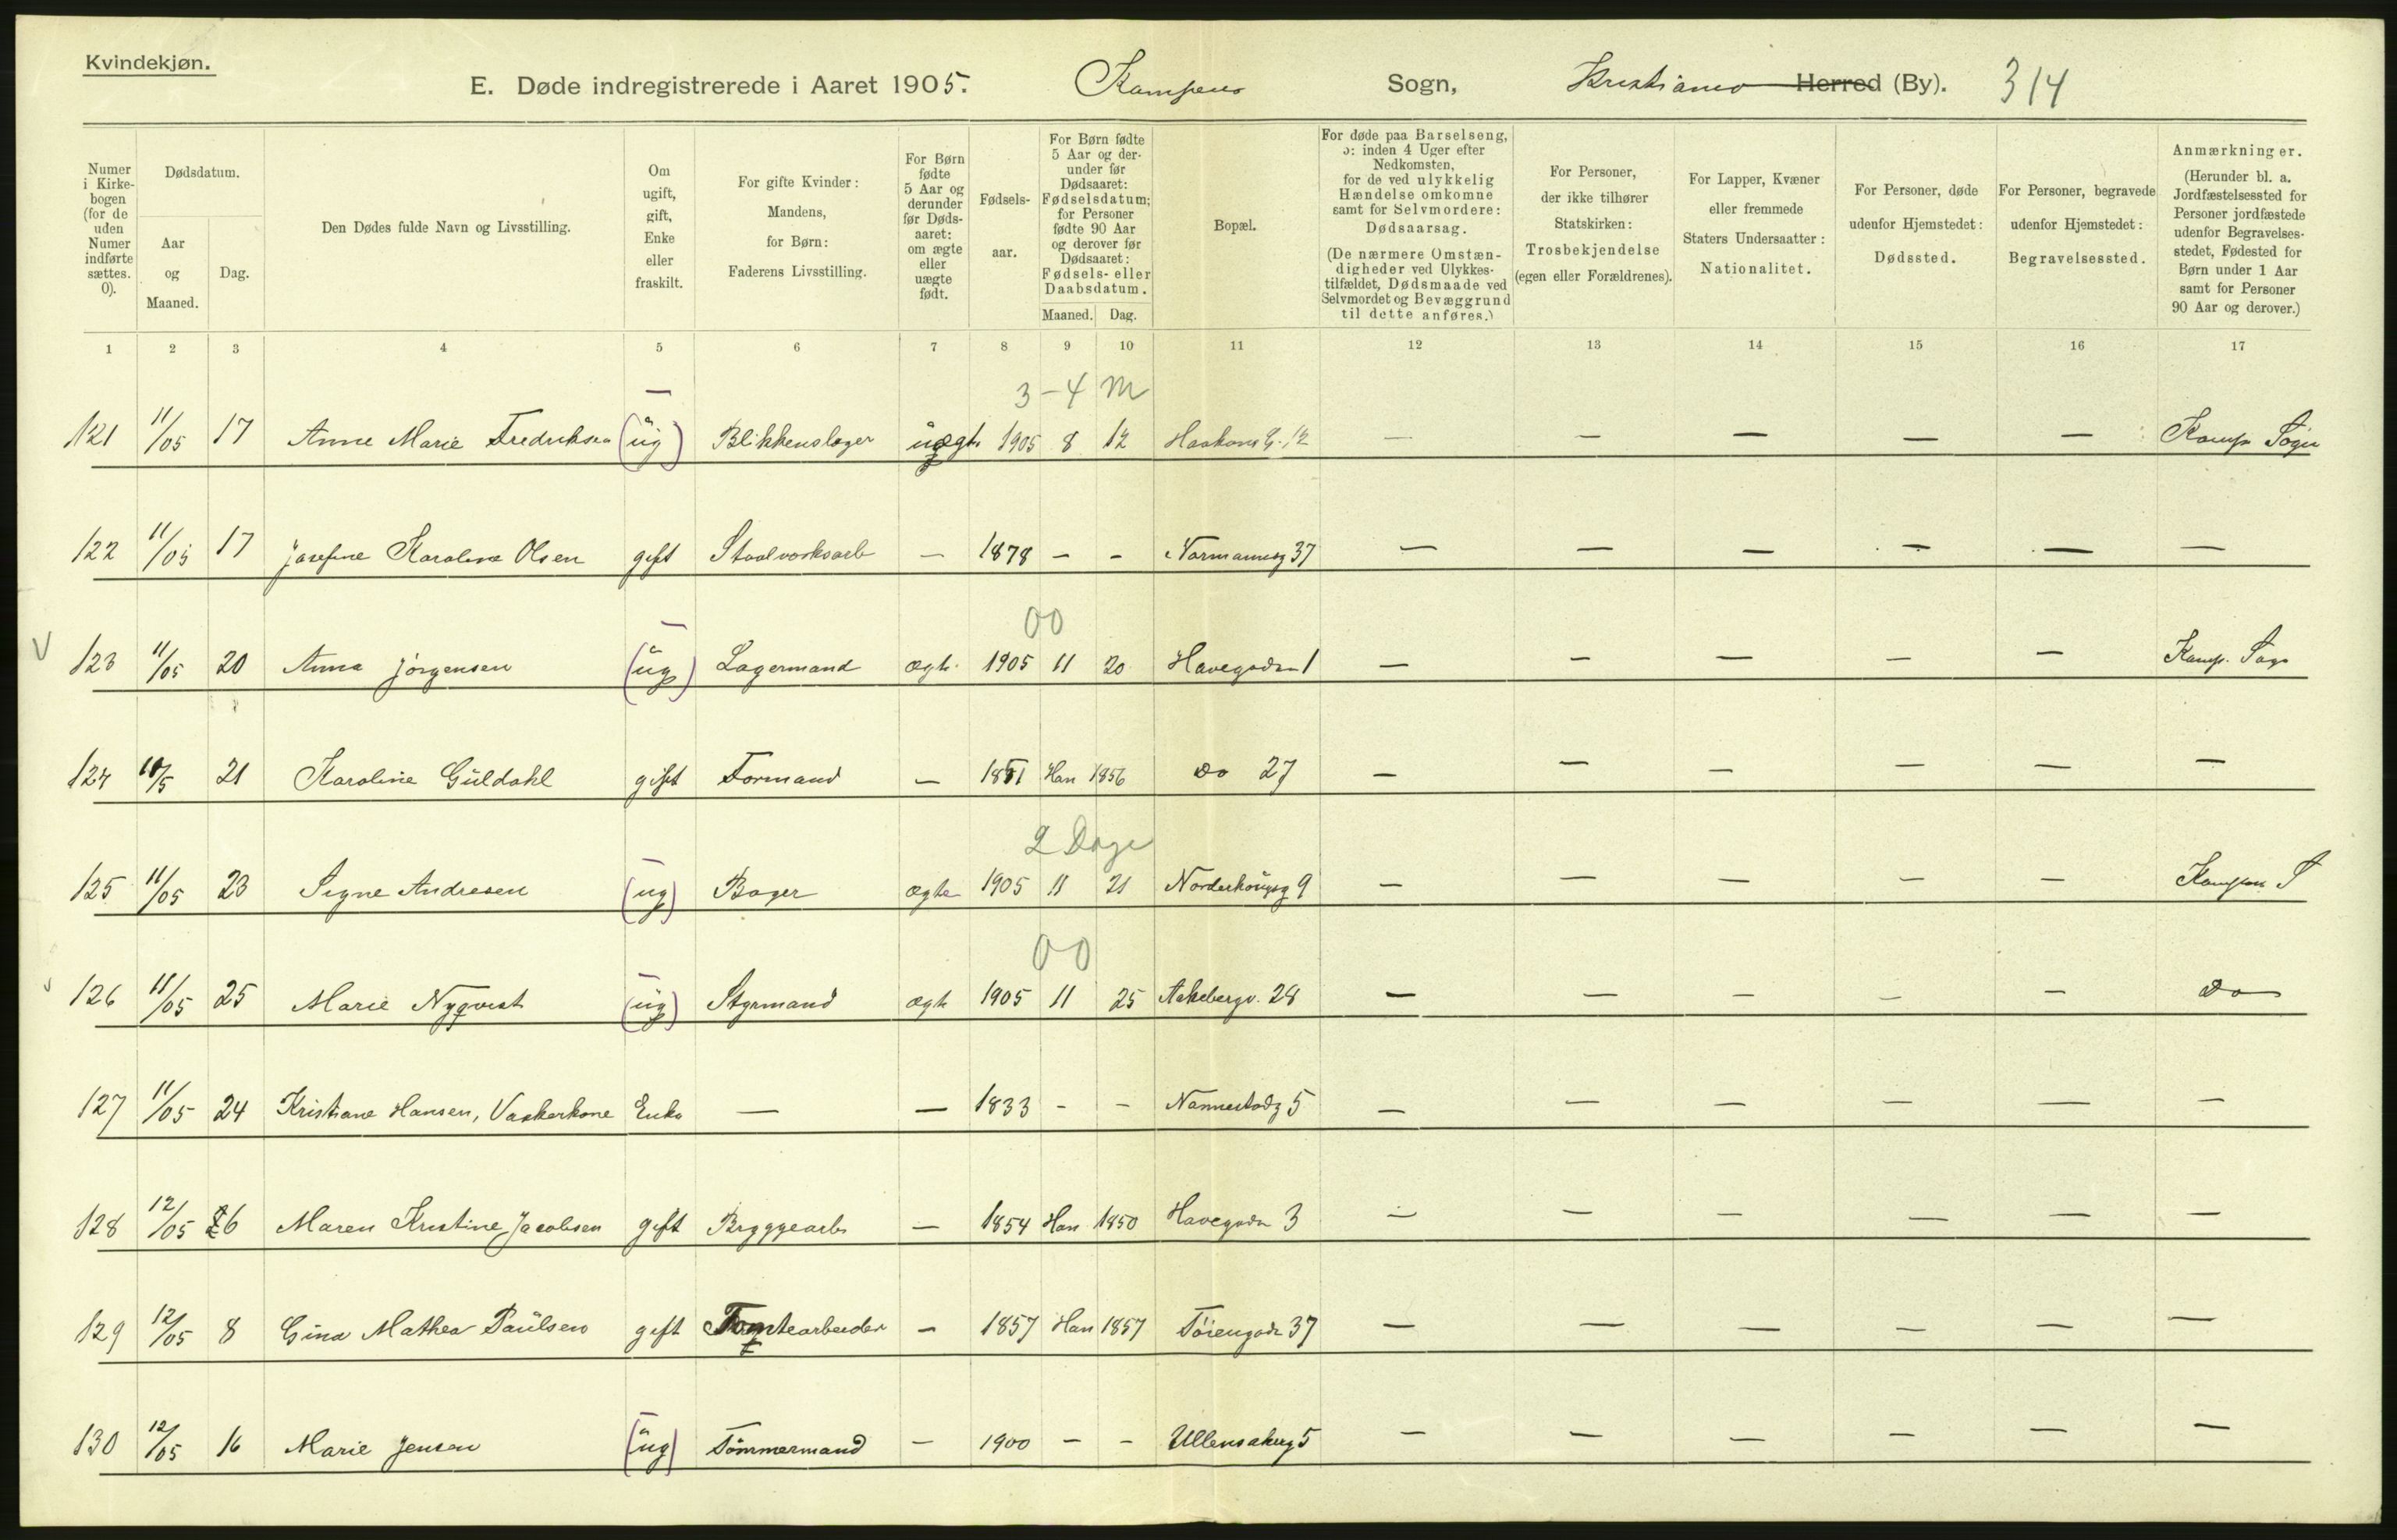 Kvindekjøn.
E. Døde indregistrerede i Aaret 1905. Kampens Sogn, Kristiania Herred (By). 314
Numer i Kirkebogen (for de uden Numer indførte sættes. 0).
Dødsdatum.
Aar og Maaned.
Dag.
Den Dødes fulde Navn og Livsstilling.
Om ugift, gift, Enke eller fraskilt.
For gifte Kvinder: Mandens, for Børn: Faderens Livsstilling.
For Børn fødte 5 Aar og derunder før Dødsaaret: om ægte eller uægte født.
Fødselsaar.
For Børn fødte 5 Aar og derunder før Dødsaaret: Fødselsdatum; for Personer fødte 90 Aar og derover før Dødsaaret: Fødsels- eller Daabsdatum.
Maaned. Dag.
Bopæl.
For døde paa Barselseng, ɔ: inden 4 Uger efter Nedkomsten, for de ved ulykkelig Hændelse omkomne samt for Selvmordere: Dødsaarsag.
(De nærmere Omstændigheder ved Ulykkestilfældet, Dødsmaade ved Selvmordet og Bevæggrund til dette anføres.)
For Personer, der ikke tilhører Statskirken: Trosbekjendelse (egen eller Forældrenes).
For Lapper, Kvæner eller fremmede Staters Undersaatter: Nationalitet.
For Personer, døde udenfor Hjemstedet: Dødssted.
For Personer, begravede udenfor Hjemstedet: Begravelsessted.
Anmærkninger.
(Herunder bl. a. Jordfæstelsessted for Personer jordfæstede udenfor Begravelsesstedet, Fødested for Børn under 1 Aar samt for Personer 90 Aar og derover.)
1 2 3 4 5 6 7 8 9 10 11 12 13 14 15 16 17
3-4 M
121 11/05 17 Anne Marie Fredriksen (ug) Blikkenslager uægte 1905 8 12 Haakons G. 12 — — — — — Kamp. Sogn
122 11/05 17 Josefine Karoline Olsen gift Staalverksarb — 1878 - - Normannsg 37 — — — — — —
00
V 123 11/05 20 Anna Jörgensen (ug) Lagermand ægte 1905 11 20 Havegaden 1 — — — — — Kamp. Sogn
124 11/5 21 Karoline Guldahl gift Formand — 1851 Han 1856 Do 27 — — — — — —
2 Dage
125 11/05 23 Signe Andresen (ug) Bager ægte 1905 11 21 Norderhougsg 9 — — — — — Kampen S
00
126 11/05 25 Marie Nyqvist (ug) Styrmand ægte 1905 11 25 Akebergv. 28 — — — — — Do
127 11/05 24 Kristiane Hansen, Vaskerkone Enke — — 1833 - - Nannestadg 5 — — — — — —
128 12/05 26 Maren Kristine Jacobsen gift Bryggearb — 1854 Han 1850 Havegaden 3 — — — — — —
129 12/05 8 Gina Mathea Paulsen gift Tomtearbeider — 1857 Han 1857 Töiengade 37 — — — — — —
130 12/05 16 Marie Jensen (ug) Tömmermand — 1900 - - Ullensakerg 5 — — — — — —